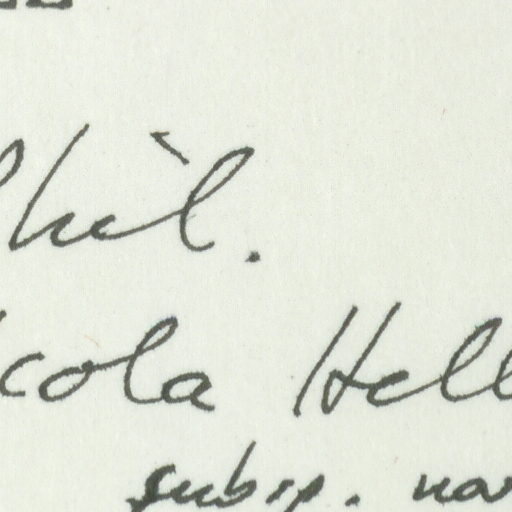 hil.
cola Hell
subsp. nov